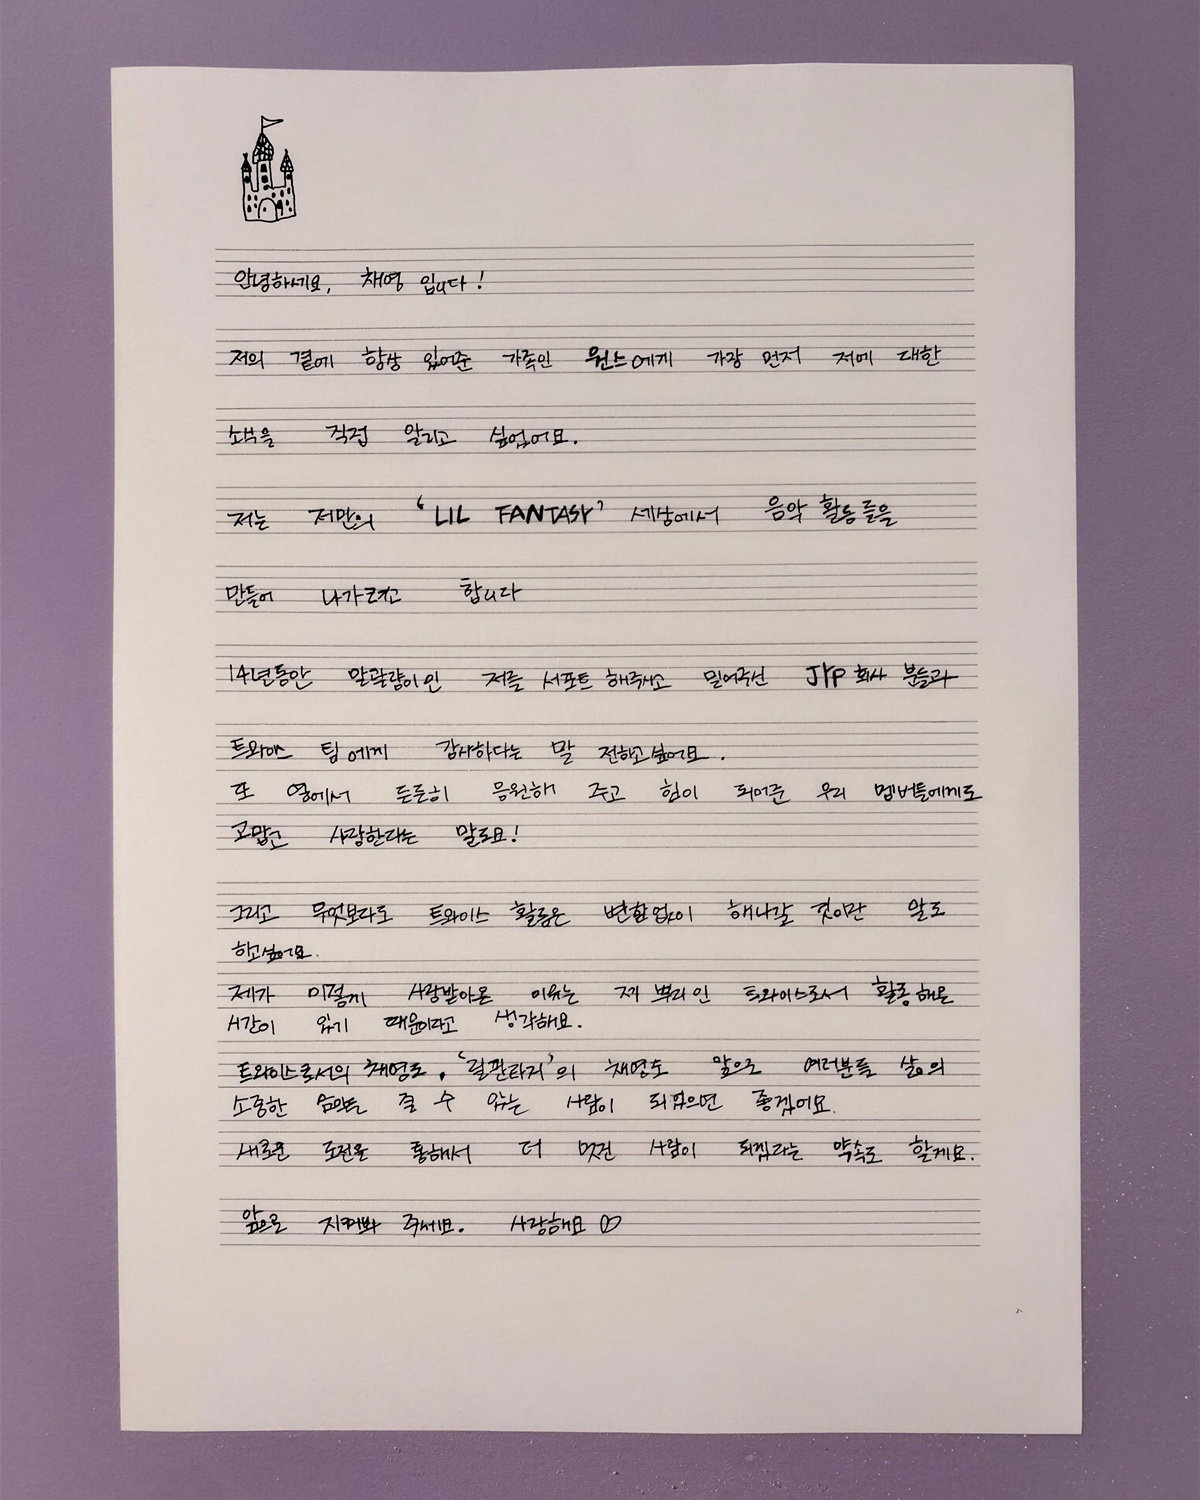 안녕하세요, 채영 입니다!
저의 곁에 항상 있어준 가족인 원스에게 가장 먼저 저에 대한
소식을 직접 알리고 싶었어요.
저는 저만의 'LIL FANTASY' 세상에서 음악 활동들을
만들어 나가려고 합니다
14년동안 말괄량이인 저를 서포트 해주시고 밀어주신 JYP 회사 분들과
트와이스 팀에게 감사하다는 말 전하고싶어요.
또 옆에서 든든히 응원해 주고 힘이 되어준 우리 멤버들에게도
고맙고 사랑한다는 말도요!
그리고 무엇보다도 트와이스 활동은 변함없이 해나갈 것이란 말도
하고싶어요.
제가 이렇게 사랑받아온 이유는 제 뿌리인 트와이스로서 활동해온
시간이 있기 때문이라고 생각해요.
트와이스로서의 채영도, '릴판타지'의 채영도 앞으로 여러분들 삶의
소중한 을 줄 수 있는 사람이 되었으면 좋겠어요.
새로운 도전을 통해서 더 멋진 사람이 되겠다는 약속도 할게요.
앞으로 지켜봐 주세요. 사랑해요♡